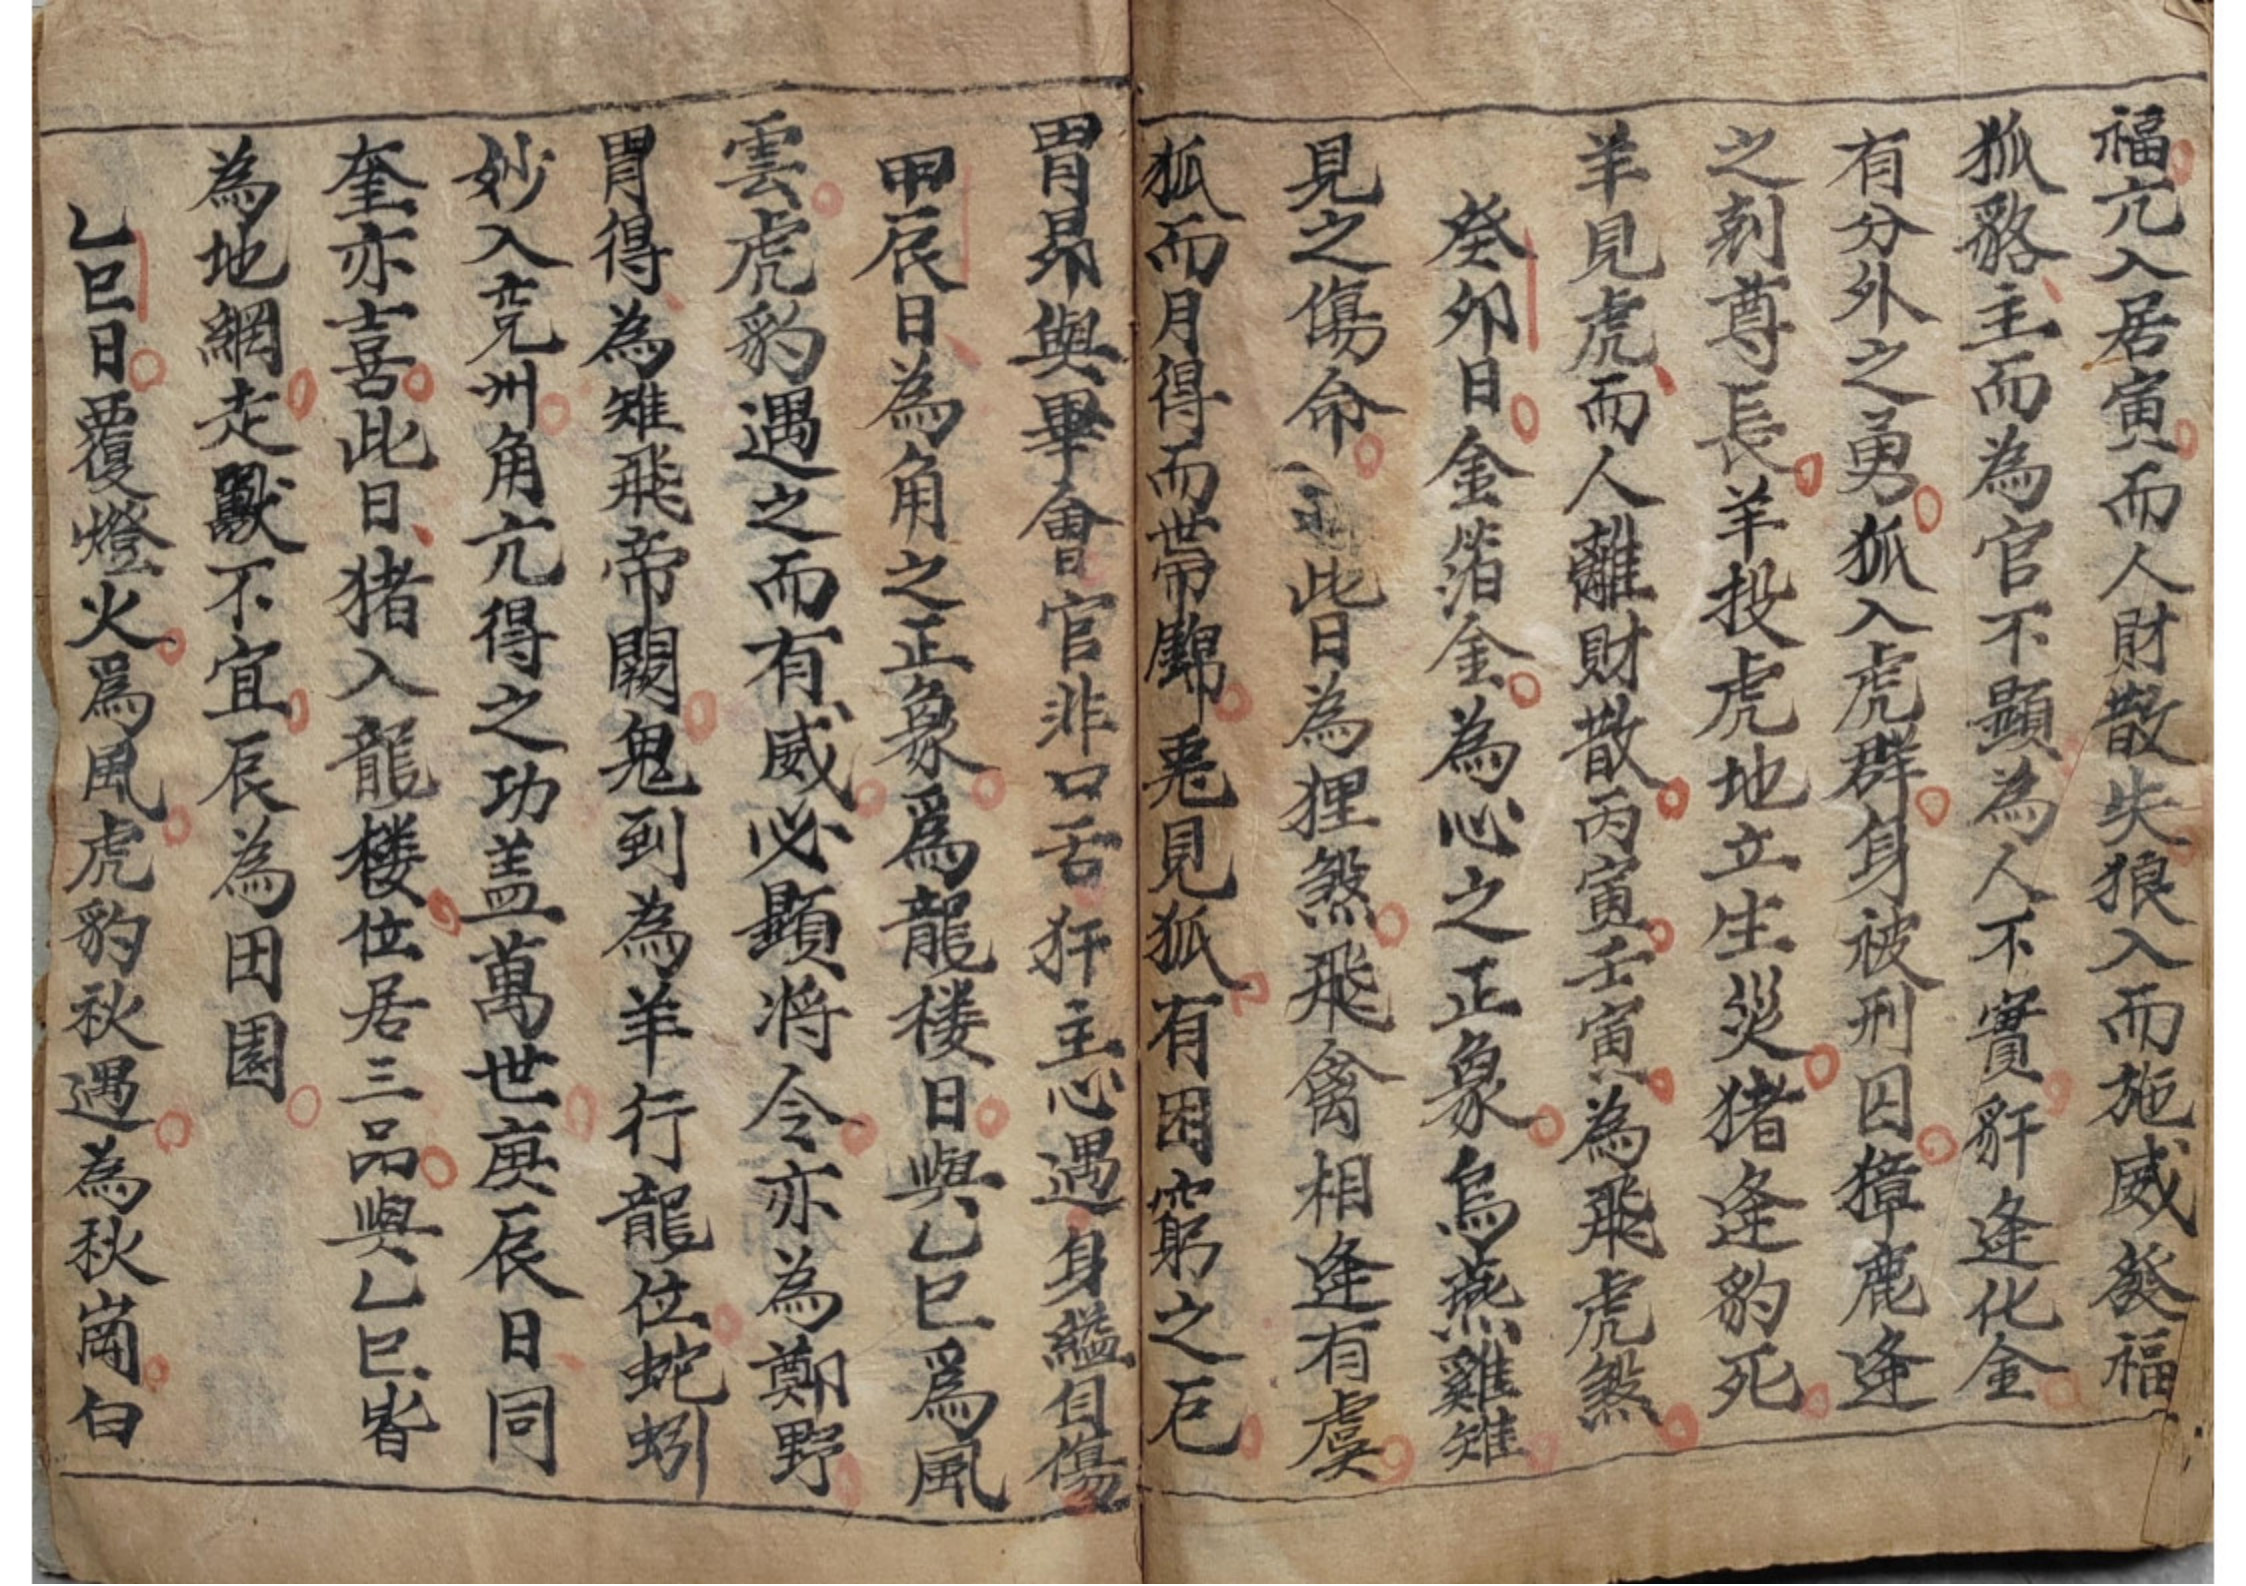 福亢入居寅而人財散失狼入而施威發福
狐貉主而為官不顯為人不實豻逢化金
有分外之勇狐入虎群身被刑囚獐鹿逢
之剋尊長羊投虎地立生災猪逢豹死
羊見虎而人離財散丙寅壬寅為飛虎煞
癸卯日金箔金為心之正象烏燕雞雉
見之傷命此日為狸煞飛禽相逢有虞
狐而月得而世帶錦兎見狐有困窮之厄
胃昴與畢會官非口舌犴主心遇身縊自傷
甲辰日為角之正象爲龍楼日與乙巳爲風
雲虎豹遇之而有威必顕将令亦為鄭野
胃得為雉飛帝闕鬼到為羊行龍位蛇蚓
妙入兖州角亢得之功盖萬世庚辰日同
奎亦喜此日猪入龍楼位居三品與乙巳皆
為地網走獸不宜辰為田園
乙巳日覆燈火爲風虎豹秋遇為秋崗白